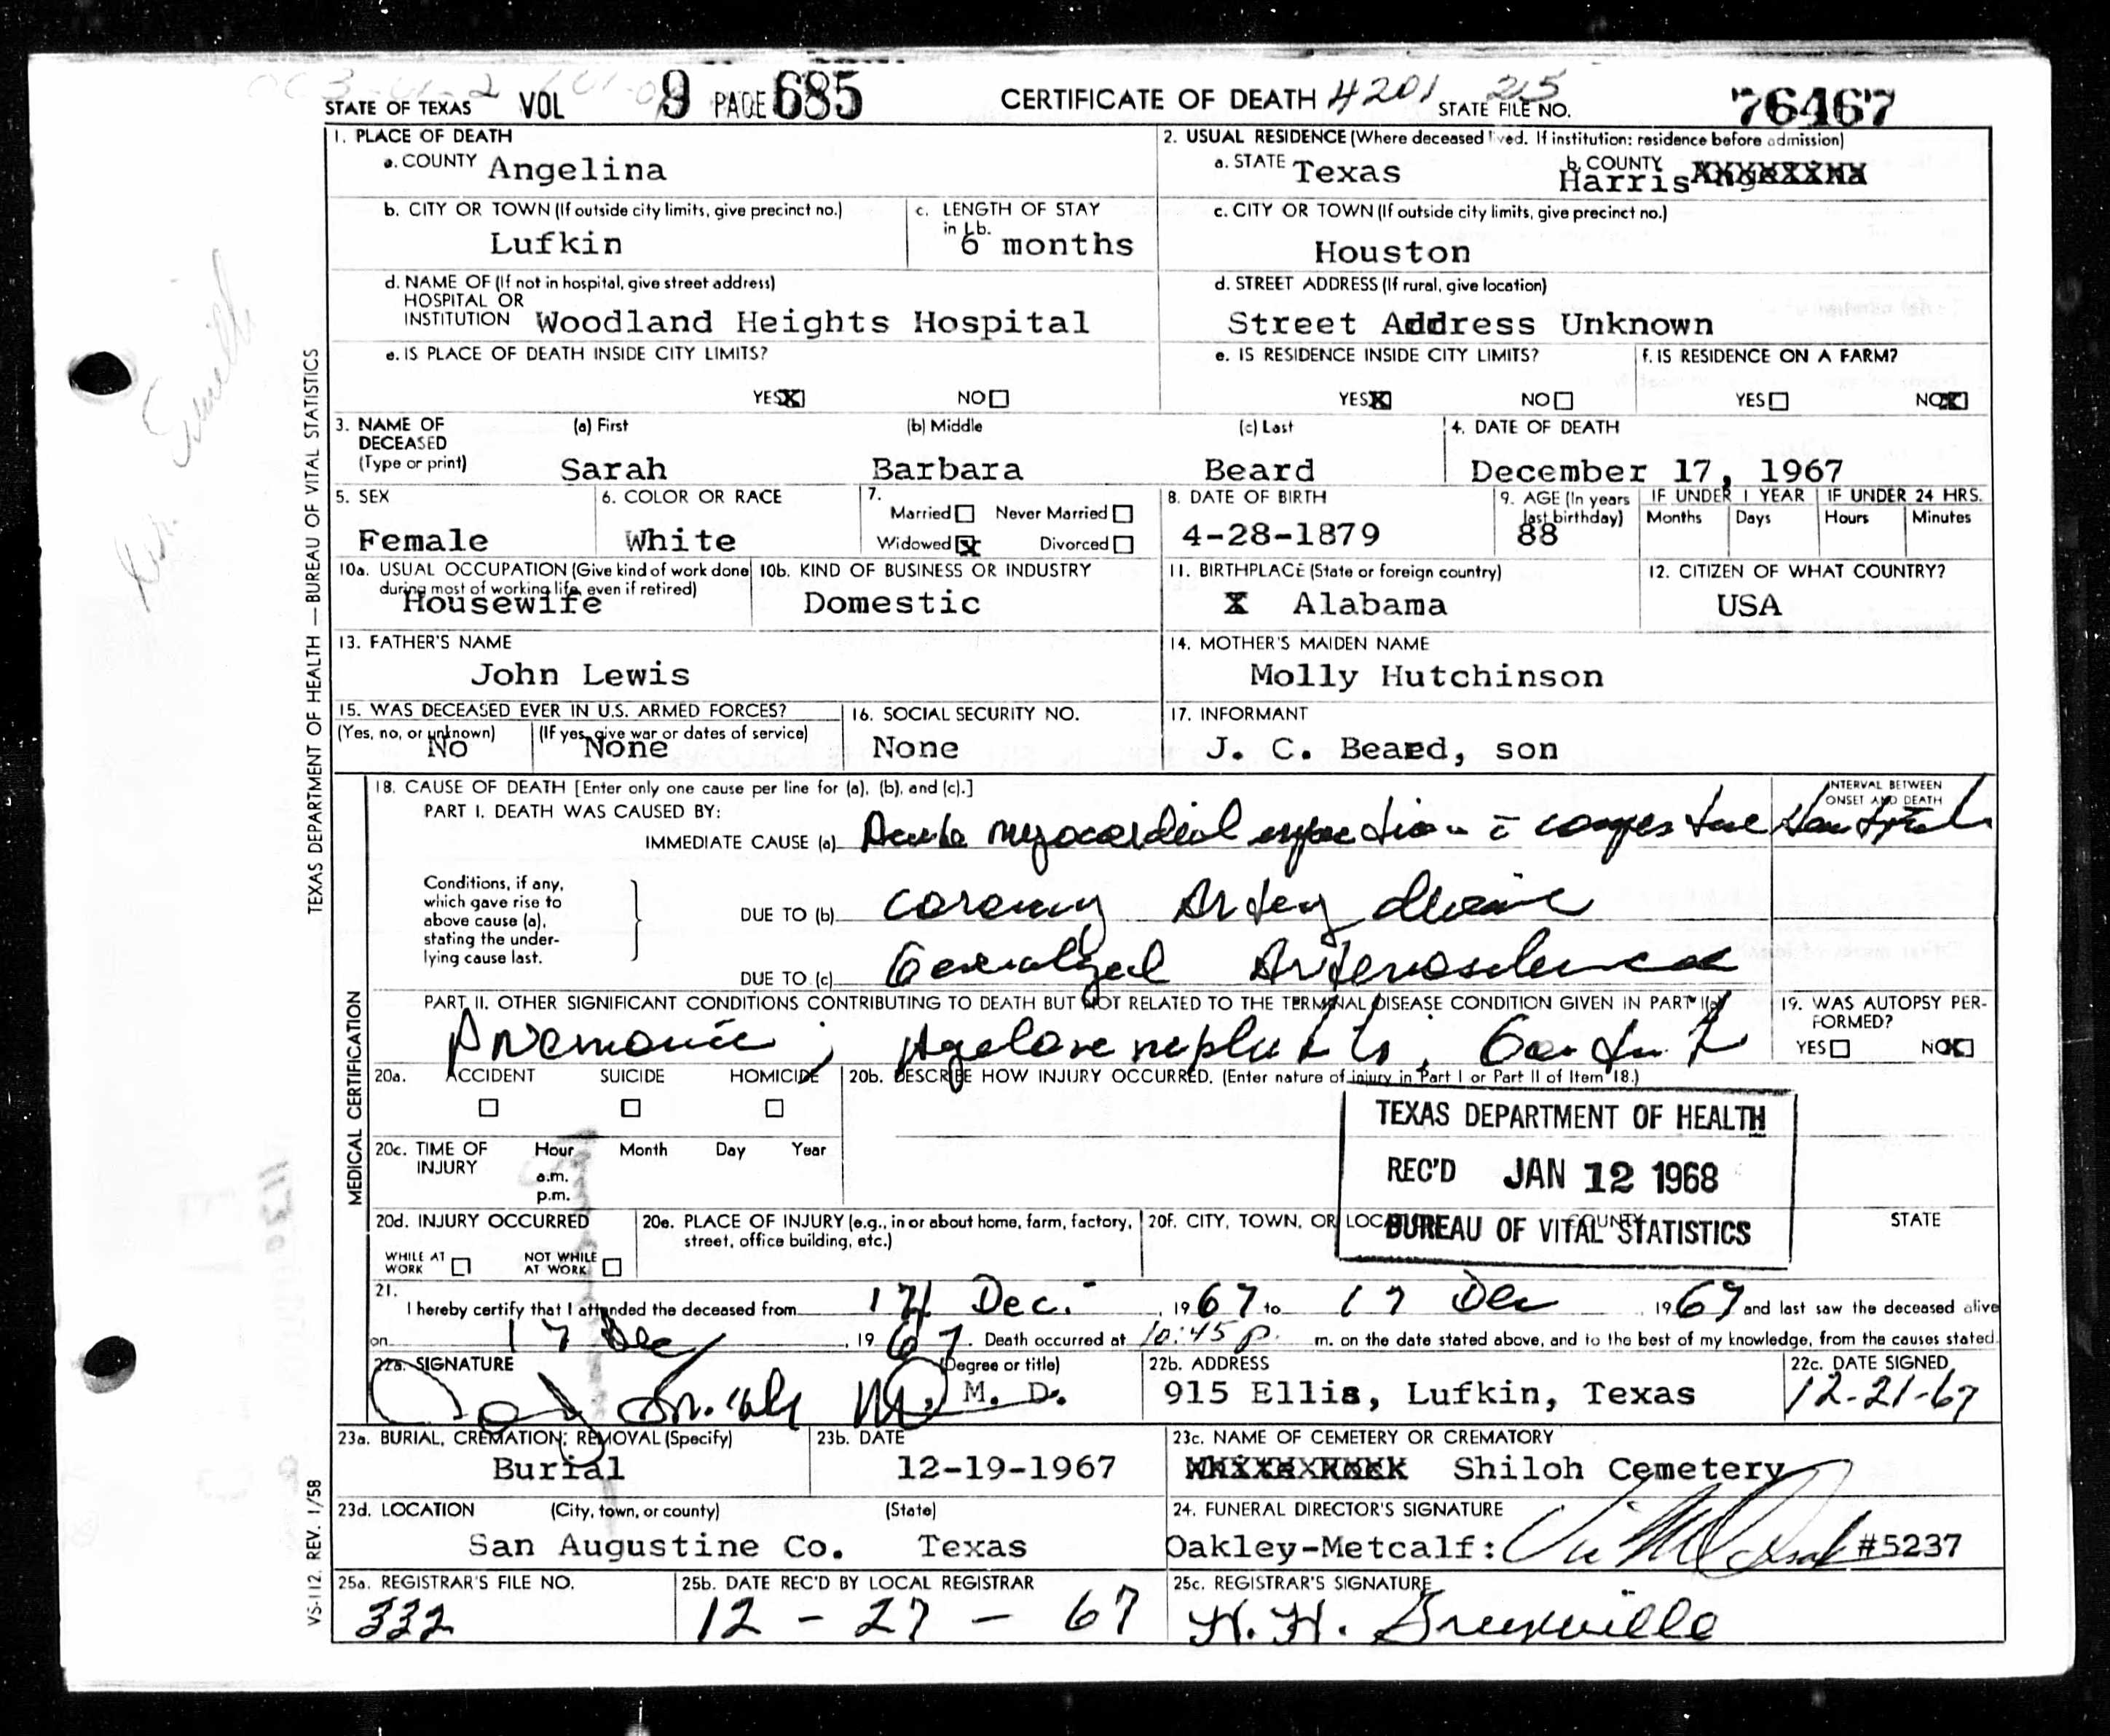 STATE OF TEXAS VOL 9 PAGE 685 CERTIFICATE OF DEATH 4201 STATE FILE NO. 25 76467
1. PLACE OF DEATH
a. COUNTY Angelina
2. USUAL RESIDENCE (Where deceased lived. If institution: residence before admission)
a. STATE Texas b. COUNTY Harris
b. CITY OR TOWN (If outside city limits, give precinct no.)
Lufkin
c. LENGTH OF STAY in 1b.
6 months
c. CITY OR TOWN (If outside city limits, give precinct no.)
Houston
d. NAME OF (If not in hospital, give street address)
HOSPITAL OR
INSTITUTION Woodland Heights Hospital
d. STREET ADDRESS (If rural, give location)
Street Address Unknown
e. IS PLACE OF DEATH INSIDE CITY LIMITS?
YES X NO
e. IS RESIDENCE INSIDE CITY LIMITS?
YES X NO
f. IS RESIDENCE ON A FARM?
YES NO X
3. NAME OF DECEASED (Type or print)
(a) First (b) Middle (c) Last
Sarah Barbara Beard
4. DATE OF DEATH
December 17, 1967
5. SEX
Female
6. COLOR OR RACE
White
7.
Married Never Married
Widowed X Divorced
8. DATE OF BIRTH
4-28-1879
9. AGE (In years last birthday)
88
IF UNDER 1 YEAR IF UNDER 24 HRS.
Months Days Hours Minutes
10a. USUAL OCCUPATION (Give kind of work done during most of working life, even if retired)
Housewife
10b. KIND OF BUSINESS OR INDUSTRY
Domestic
11. BIRTHPLACE (State or foreign country)
X Alabama
12. CITIZEN OF WHAT COUNTRY?
USA
13. FATHER'S NAME
John Lewis
14. MOTHER'S MAIDEN NAME
Molly Hutchinson
15. WAS DECEASED EVER IN U.S. ARMED FORCES?
(Yes, no, or unknown) (If yes, give war or dates of service)
No None
16. SOCIAL SECURITY NO.
None
17. INFORMANT
J. C. Beard, son
18. CAUSE OF DEATH [Enter only one cause per line for (a), (b), and (c).]
INTERVAL BETWEEN ONSET AND DEATH
PART I. DEATH WAS CAUSED BY:
IMMEDIATE CAUSE (a) Acute myocardial infarction c̄ congestive
Conditions, if any,
which gave rise to
above cause (a),
stating the under-
lying cause last.
DUE TO (b) coronary Artery disease
DUE TO (c) Generalized Arteriosclerosis
PART II. OTHER SIGNIFICANT CONDITIONS CONTRIBUTING TO DEATH BUT NOT RELATED TO THE TERMINAL DISEASE CONDITION GIVEN IN PART I(a)
Pneumonia;
19. WAS AUTOPSY PER-
FORMED?
YES NO X
20a. ACCIDENT SUICIDE HOMICIDE
20b. DESCRIBE HOW INJURY OCCURRED. (Enter nature of injury in Part I or Part II of Item 18.)
TEXAS DEPARTMENT OF HEALTH
REC'D JAN 12 1968
BUREAU OF VITAL STATISTICS
20c. TIME OF INJURY
Hour Month Day Year
a.m.
p.m.
20d. INJURY OCCURRED
WHILE AT WORK NOT WHILE AT WORK
20e. PLACE OF INJURY (e.g., in or about home, farm, factory, street, office building, etc.)
20F. CITY, TOWN, OR COUNTY STATE
21.
I hereby certify that I attended the deceased from Dec. , 1967 to 17 Dec , 1967 and last saw the deceased alive
on 17 Dec , 1967. Death occurred at 10:45 p. m. on the date stated above, and to the best of my knowledge, from the causes stated.
22a. SIGNATURE (Degree or title)
M. D.
22b. ADDRESS
915 Ellis, Lufkin, Texas
22c. DATE SIGNED
12-21-67
23a. BURIAL, CREMATION, REMOVAL (Specify)
Burial
23b. DATE
12-19-1967
23c. NAME OF CEMETERY OR CREMATORY
Shiloh Cemetery
23d. LOCATION (City, town, or county) (State)
San Augustine Co. Texas
24. FUNERAL DIRECTOR'S SIGNATURE
Oakley-Metcalf: #5237
25a. REGISTRAR'S FILE NO.
332
25b. DATE REC'D BY LOCAL REGISTRAR
12 - 27 - 67
25c. REGISTRAR'S SIGNATURE
H. H.
TEXAS DEPARTMENT OF HEALTH — BUREAU OF VITAL STATISTICS
MEDICAL CERTIFICATION
VS-112. REV. 1/58